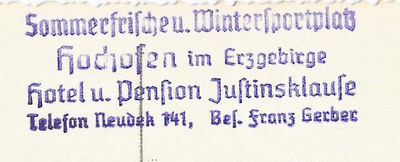 Sommerfrische u. Wintersportplatz
Hochofen im Erzgebirge
Hotel u. Pension Justinsklause
Telefon Neudek 141, Bes. Franz Gerber